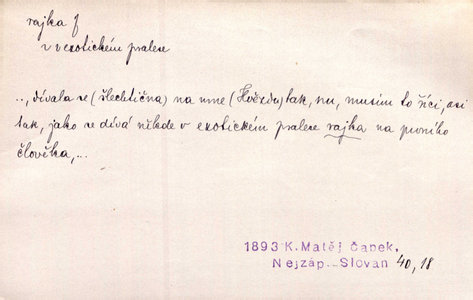 rajka f
v exotickém pralese
.., dívala se (šlechtična) na mne (Hvězdu) tak, nu, musím to říci, asi
tak, jako se dívá někde v exotickém pralese rajka na prvního
člověka,...
1893 K. Matěj Čapek,
Nejzáp. Slovan 40, 18